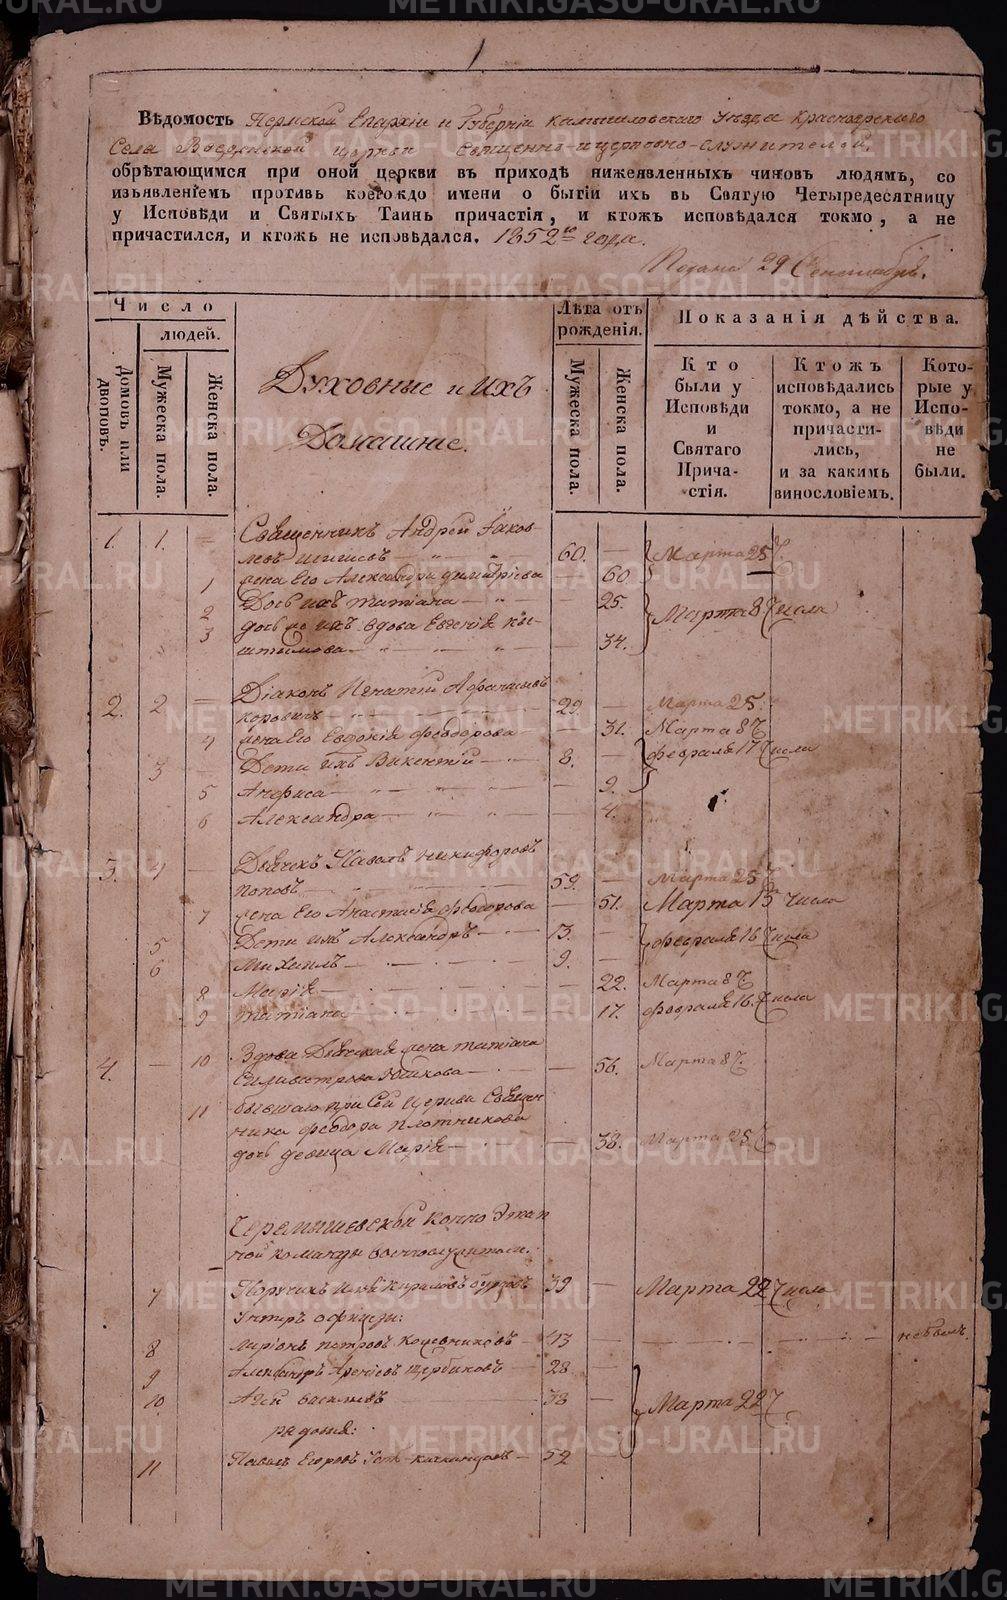 1
Вѣдомость Пермской Епархіи и Губерніи Камышловскаго Уѣзда Красноярскаго
Села Введенской церкви священно-и церковно-служителей,
обрѣтающимся при оной церкви въ приходѣ нижеявленныхъ чиновъ людямъ, со
изъявленіемъ противъ коегождо имени о бытіи ихъ въ Святую Четыредесятницу
у Исповѣди и Святыхъ Таинъ причастія, и ктожъ исповѣдался токмо, а не
причастился, и ктожъ не исповѣдался. 1852го года.
Подана 29 Сентября.
Число
людей.
Домовъ или дворовъ.
Мужеска пола.
Женска пола.
Духовные и ихъ
Домашніе.
Лѣта отъ рожденія.
Мужеска пола.
Женска пола.
Показанія дѣйства.
Кто были у Исповѣди и Святаго Прича-стія.
Ктожъ исповѣдались токмо, а не причасти-лись, и за какимъ винословіемъ.
Кото-рые у Испо-вѣди не были.
1. 1. Священникъ Андрей Іаков
левъ 60. Марта 25
1 жена Его Александра Димитріева 60.
2 Дочь ихъ Татіана 25. Марта 8 числа
3 дочь же ихъ вдова Евгенія Кы-
штымова 34.
2. 2 Діаконъ Игнатій Афанасіевъ
29. Марта 25.
4 жена Его Евдокія Феодорова 31. Марта 8
3 Дети ихъ Викентій 8. февраля 17 числа
5 Анфиса 9.
6 Александра 4.
3. 4 Дьячекъ Павелъ Никифоровъ
Поповъ 59. Марта 25
7 жена Его Анастасія Феодорова 51. Марта 15 числа
5 Дети ихъ Александръ 13. февраля 16 числа
6 Михаилъ 9.
8 Марія 22. Марта 8
9 Татіана 17. февраля 16. числа
4. 10 Вдова Дьяческая жена Татіана
Силивестрова Юшкова 56. Марта 8
11 бывшаго при Сей Церкви Священ-
ника Феодора Плотникова
дочь девица Марія 38. Марта 25
Черемышевской Конно Этап
ной команды военнослужители.
7 Порутчикъ Илья Кириловъ 39 Марта 22 числа
Унтеръ офицеры:
8 Петровъ Кожевниковъ 43 небылъ.
9 Александръ Щербиковъ 28
10 Василіевъ 38 Марта 22
рядовыя:
11 Павелъ Егоровъ 52
METRIKI.GASO-URAL.RU